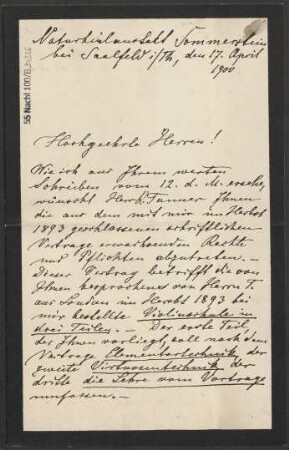 55 Nachl 100/B,
Naturheilanstalt Sommerstein
bei Saalfeld i/Th, den 17. April
1900
Hochgeehrte Herren!
Wie ich aus Ihrem werten
Schreiben vom 12. d. M. ersehe,
wünscht Herr Tanner Ihnen
die aus dem mit mir im Herbst
1893 geschlossenen schriftlichen
Vertrage erwachsenden Rechte
und Pflichten abzutreten. —
Dieser Vertrag betrifft die von
Ihnen besprochene von Herrn T.
aus London im Herbst 1893 bei
mir bestellte Violinschule in
drei Teilen. — Der erste Teil
der Ihnen vorliegt, soll nach dem
Vertrage Elementartechnik, der
zweite Virtuosentechnik, der
dritte die Lehre vom Vortrage
umfassen. —